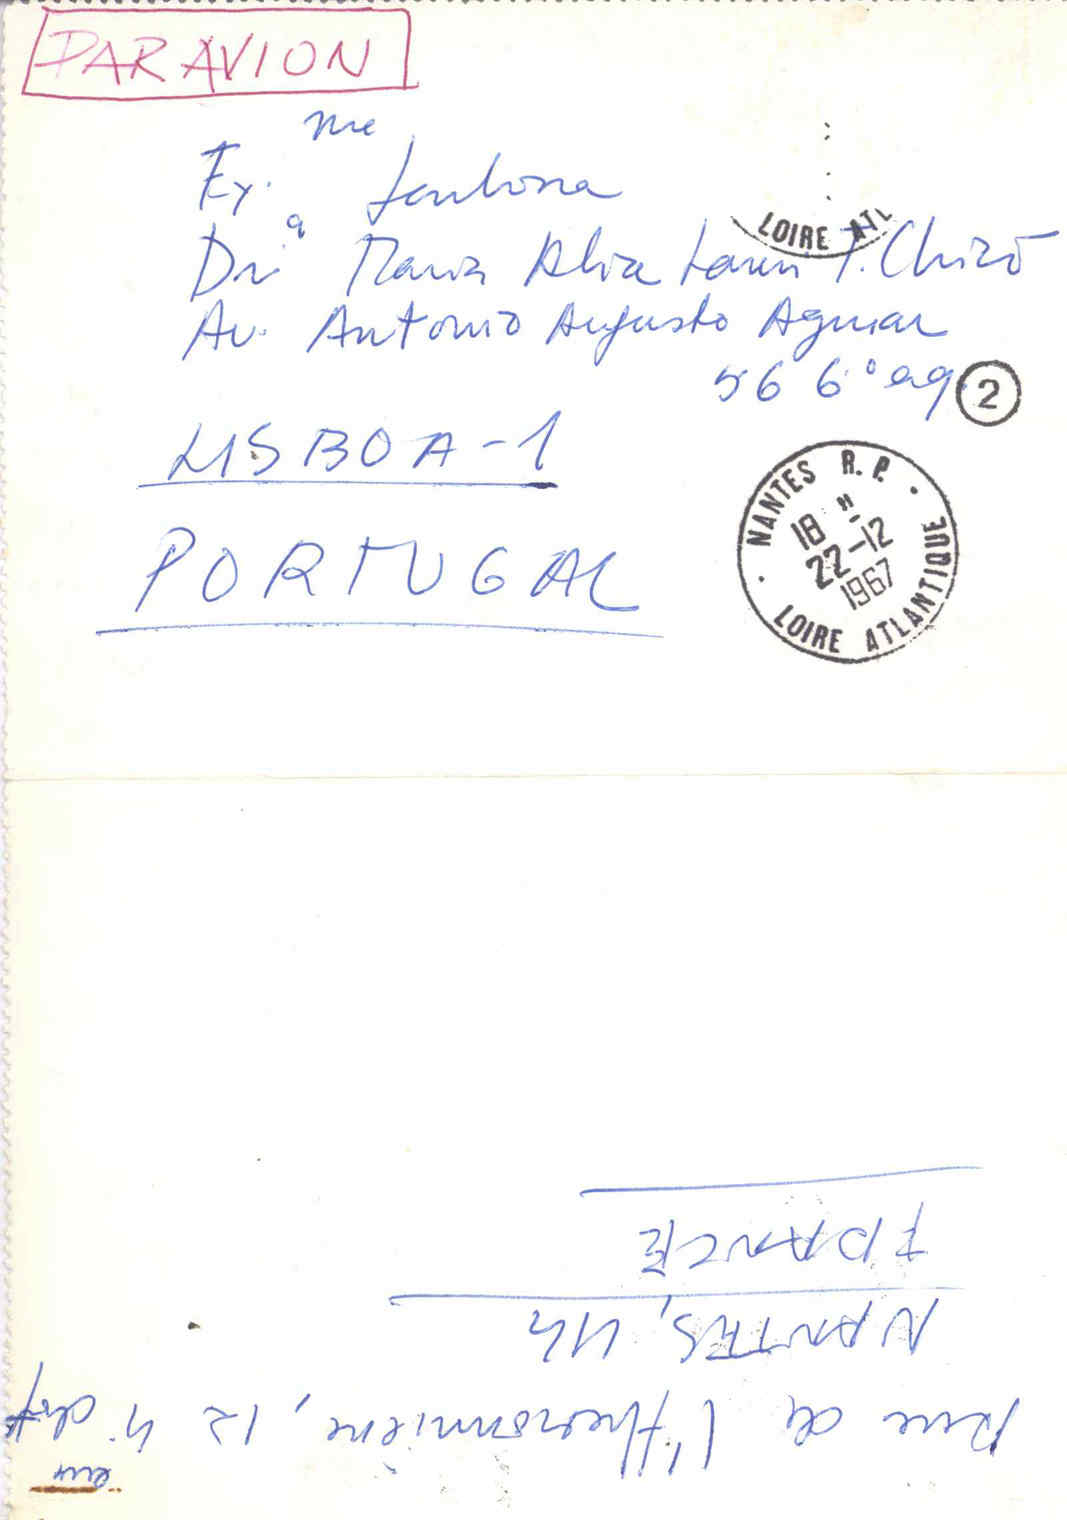 PAR AVION
Ex.me Senhora
Dr.a Maria Alice T. Chicó
Av. Antonio Augusto Aguiar
56 6º
2
LISBOA-1
PORTUGAL
LOIRE ATL
NANTES R.P.
18 H
22-12
1967
LOIRE ATLANTIQUE
Rue de 12
NANTES, 44
FRANCE